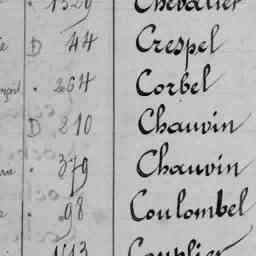 1529 Chevalier
D 44 Crespel
264 Corbel
D 210 Chauvin
379 Chauvin
98 Coulombel